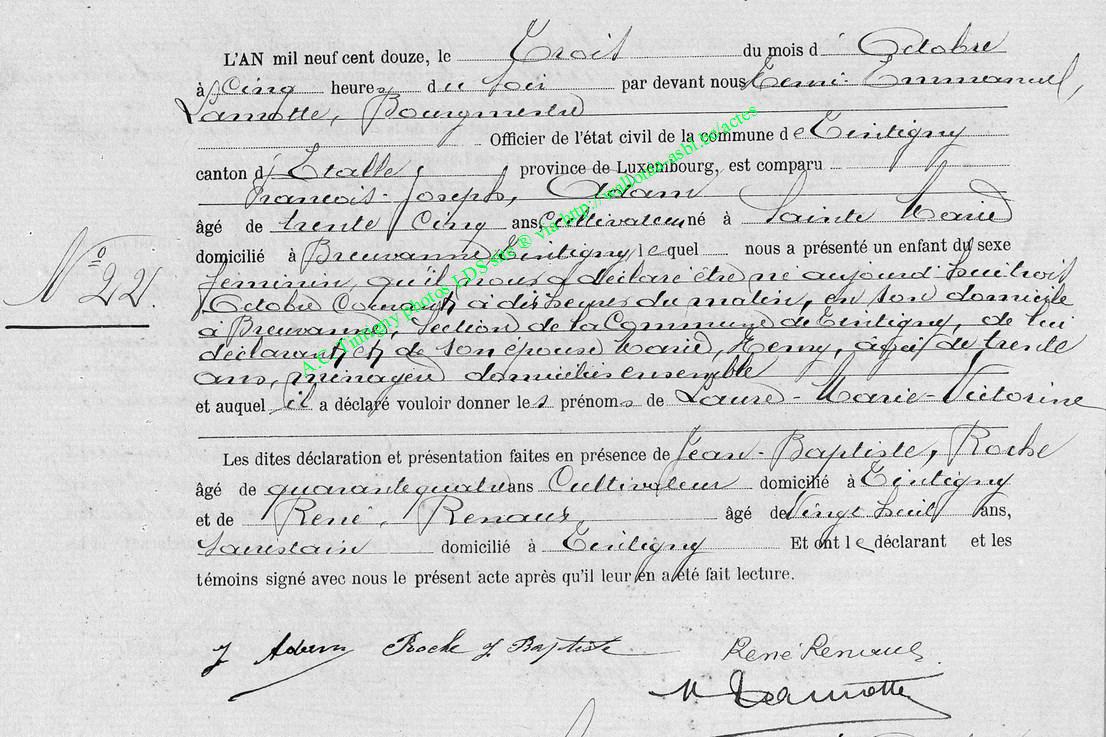 L'AN mil neuf cent douze, le Trois du mois d' Octobre
à Cinq heures du soir par devant nous Remi-Emmanuel,
Lamotte, Bourgmestre
Officier de l'état civil de la commune de Tintigny
canton d'Etalle, province de Luxembourg, est comparu
François-Joseph, Adam
âgé de trente Cinq ans, Cultivateur né à Sainte Marie
domicilié à Breuvanne Tintigny, lequel nous a présenté un enfant du sexe
feminin, qu'il nous a déclaré être né aujourd'hui trois
Octobre Courant, à dix heures du matin, en son domicile
à Breuvanne, Section de la Commune de Tintigny, de lui
déclarant et de son épouse Marie, Remy, âgée de trente
ans, ménagère domiciliés ensemble
et auquel il a déclaré vouloir donner les prénoms de Laure-Marie-Victorine
N° 22.
Les dites déclaration et présentation faites en présence de Jean-Baptiste, Roche
âgé de quarante quatre ans Cultivateur domicilié à Tintigny
et de René, Renaus âgé de Vingt huit ans,
domicilié à Tintigny Et ont le déclarant et les
témoins signé avec nous le présent acte après qu'il leur en a été fait lecture.
J Adam Roche J Baptiste René Renauls
Lamotte
A.C. Tintigny photos LDS sars ® via http://wallonia-asbl.be/actes